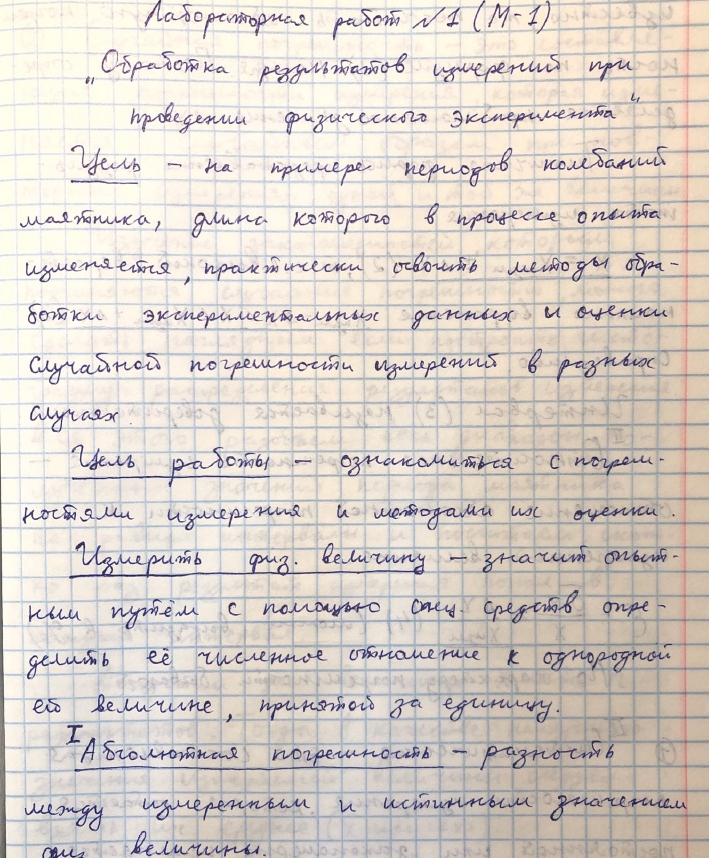 Лабораторная работ №1 (М-1)
„Обработка результатов измерений при
проведении физического эксперимента“
Цель – на примере периодов колебаний
маятника, длина которого в процессе опыта
изменяется, практически освоить методы обра-
ботки экспериментальных данных и оценки
случайной погрешности измерений в разных
случаях.
Цель работы – ознакомиться с погреш-
ностями измерения и методами их оценки.
Измерить физ. величину – значит опыт-
ным путём с помощью спец. средств опре-
делить её численное отношение к однородной
ей величине, принятой за единицу.
I Абсолютная погрешность – разность
между измеренным и истинным значением
физ. величины.